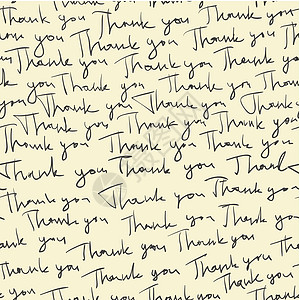 Thank you Thank you
Thank you Thank you Thank
you Thank you Thank you
you Thank you Thank
Thank you Thank you
Thank you Thank you Thank
Thank you Thank you
Thank you Thank you Thank
Thank you Thank you
Thank you Thank you
Thank you Thank you
you Thank you Thank you
Thank you Thank you
Thank you Thank you